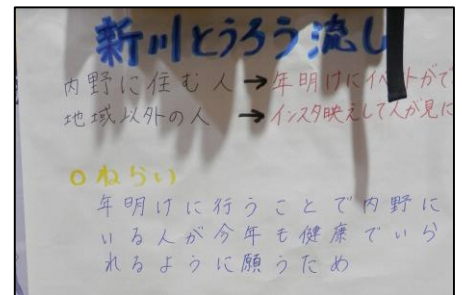 新川とうろう流し
内野に住む人→年明けにイベントがで
地域以外の人→インスタ映えして人が見に
○ねらい
年明けに行うことで内野に
いる人が今年も健康でいら
れるように願うため